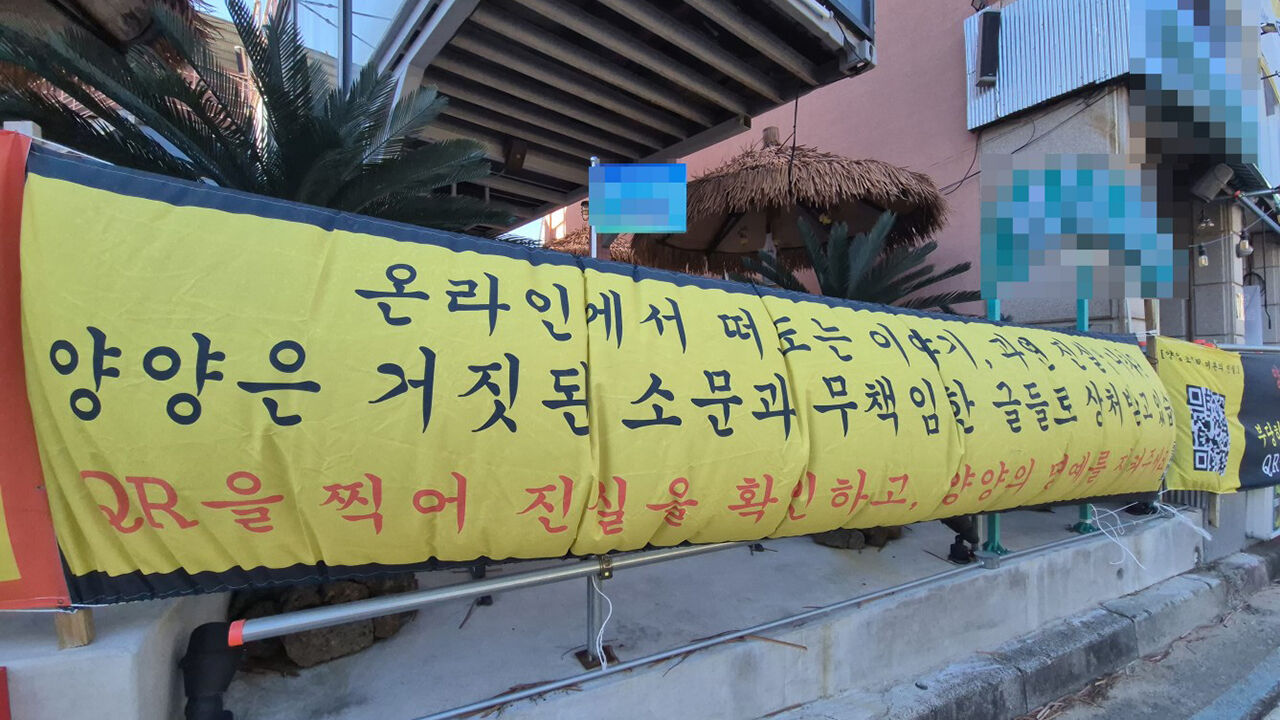 온라인에서 떠도는 이야기, 과연 진실
양양은 거짓된 소문과 무책임한 글들로 상처받고 있습
QR을 찍어 진실을 확인하고, 양양의 명예를 지켜주세요
부당한
QR